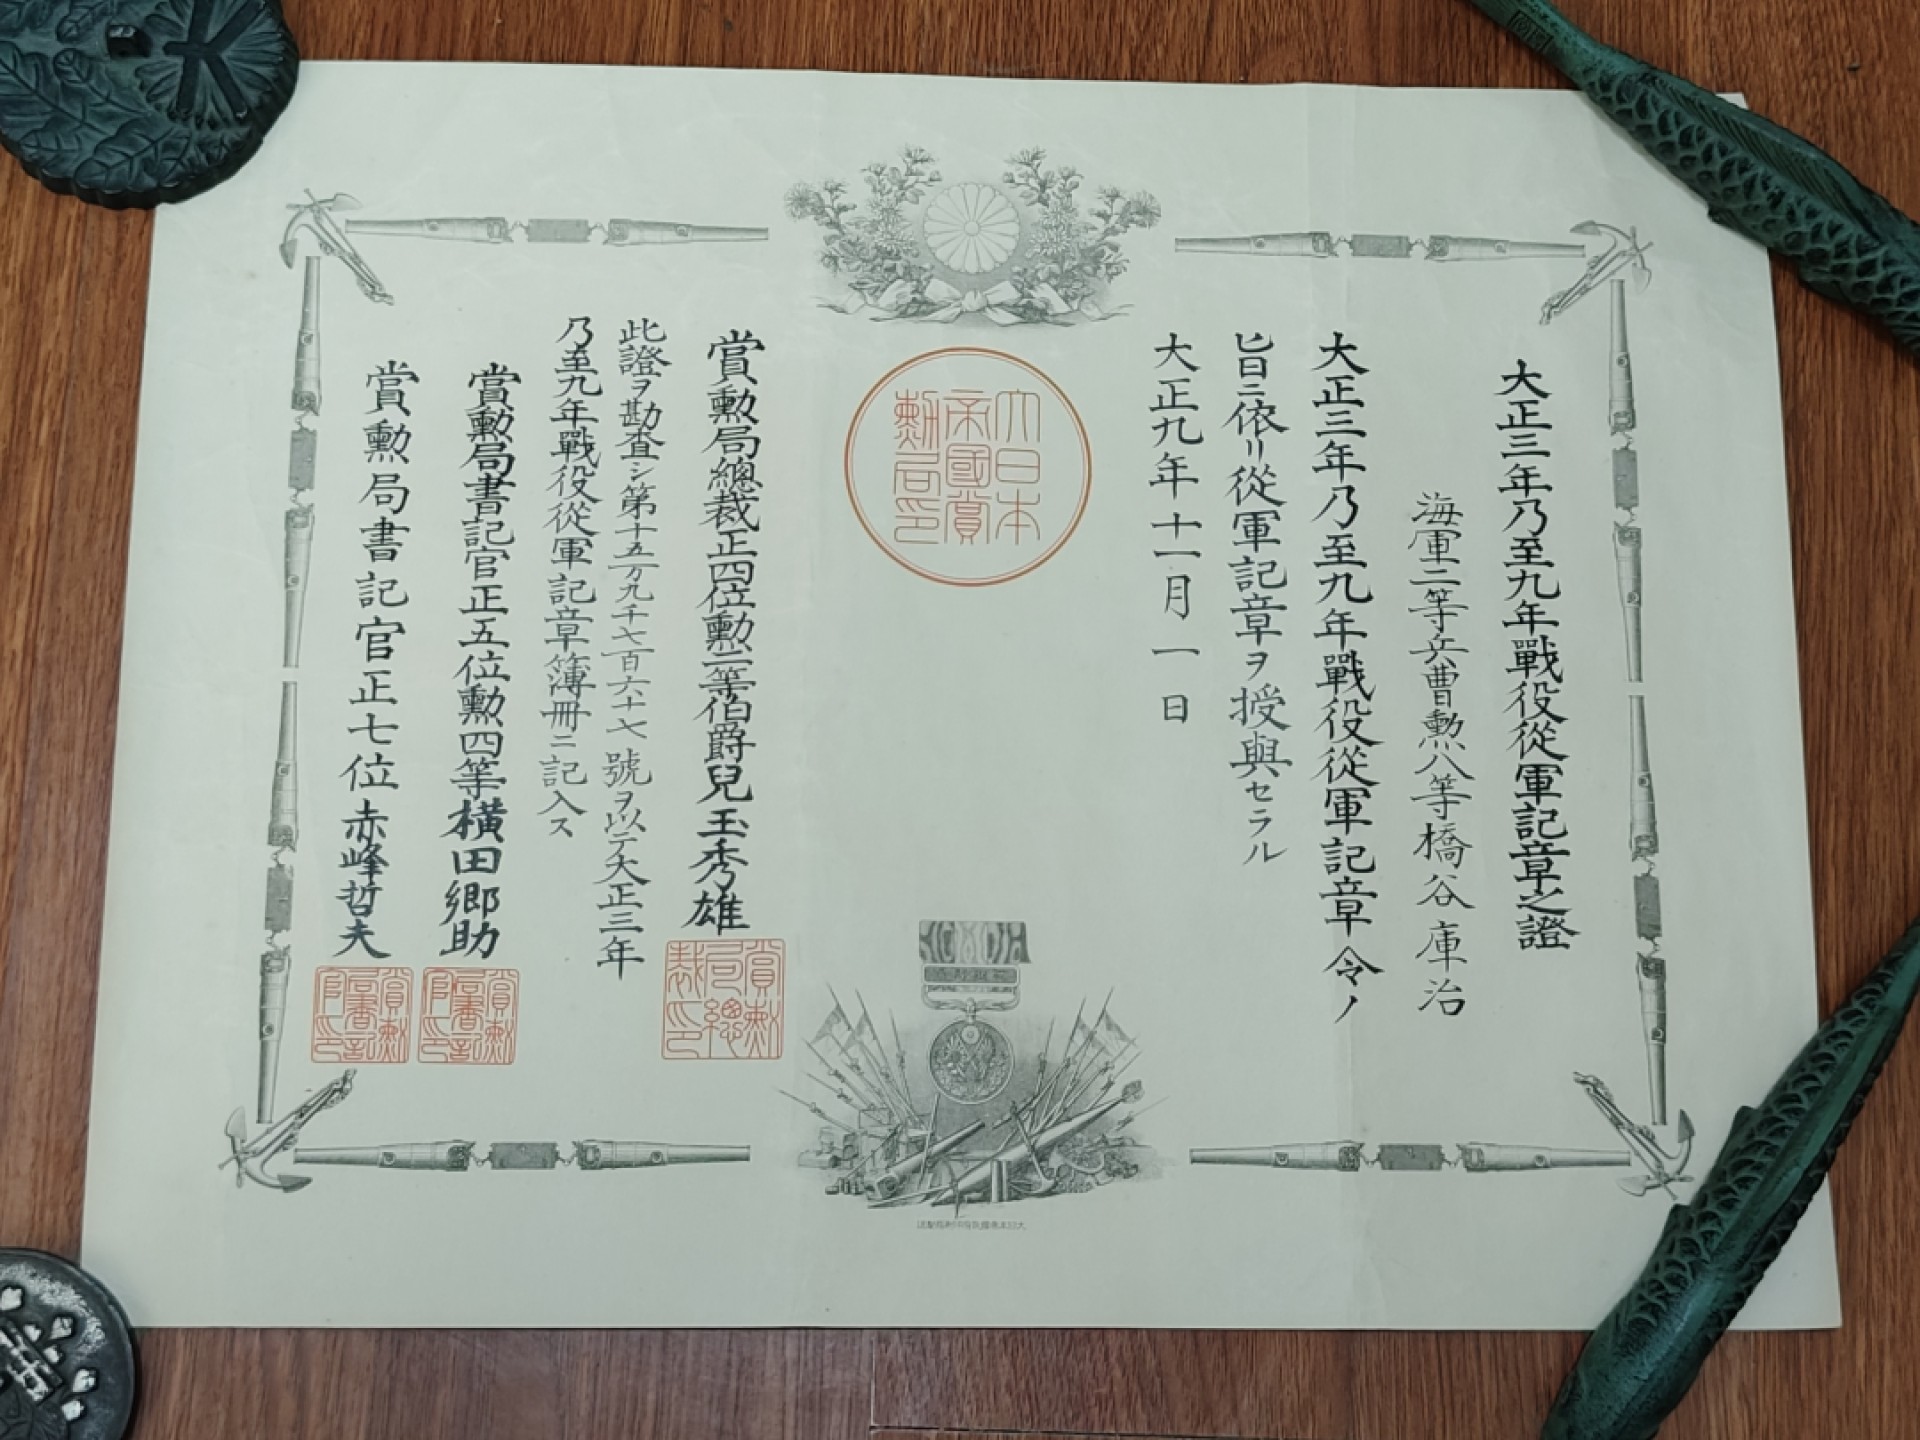 大正三年乃至九年戰役從軍記章之證
海軍二等兵曹勲八等橋谷庫治
大正三年乃至九年戰役從軍記章令ノ
旨ニ依リ從軍記章ヲ授與セラル
大正九年十一月一日
大日本
帝國賞
勲局印
賞勲局總裁正四位勲二等伯爵兒玉秀雄
賞勲
局總
裁印
此證ヲ勘査シ第十五万九千七百六十七號ヲ以テ大正三年
乃至九年戰役從軍記章簿冊ニ記入ス
賞勲局書記官正五位勲四等橫田郷助
賞勲
局書記
官印
賞勲局書記官正七位赤峰哲夫
賞勲
局書記
官印